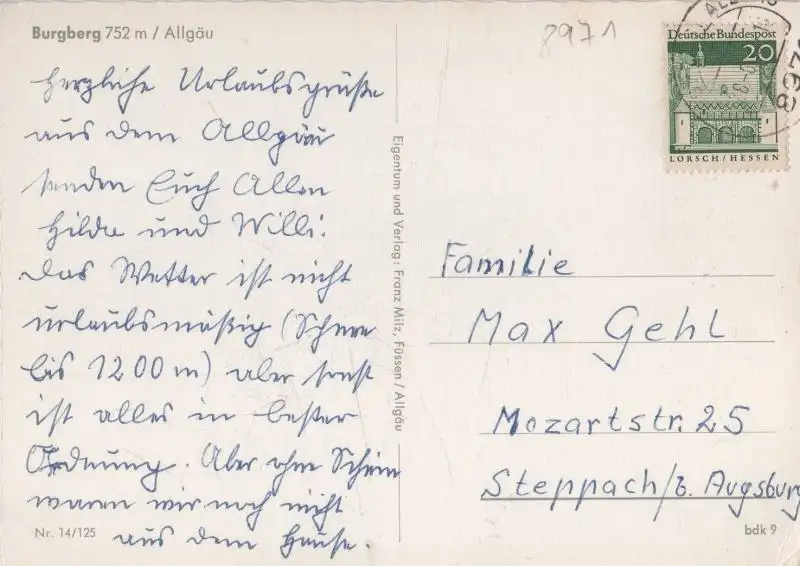 Burgberg 752 m / Allgäu
herzliche Urlaubsgrüße
aus dem Allgäu
senden Euch Allen
Hilde und Willi.
Das Wetter ist nicht
urlaubsmäßig (Schnee
bis 1200 m) aber sonst
ist alles in bester
Ordnung. Aber ohne Schirm
waren wir noch nicht
aus dem Hause.
Nr. 14/125
Eigentum und Verlag: Franz Milz, Füssen / Allgäu
8971
Deutsche Bundespost
20
LORSCH / HESSEN
8972
Familie
Max Gehl
Mozartstr. 25
Steppach/b. Augsburg
bdk 9